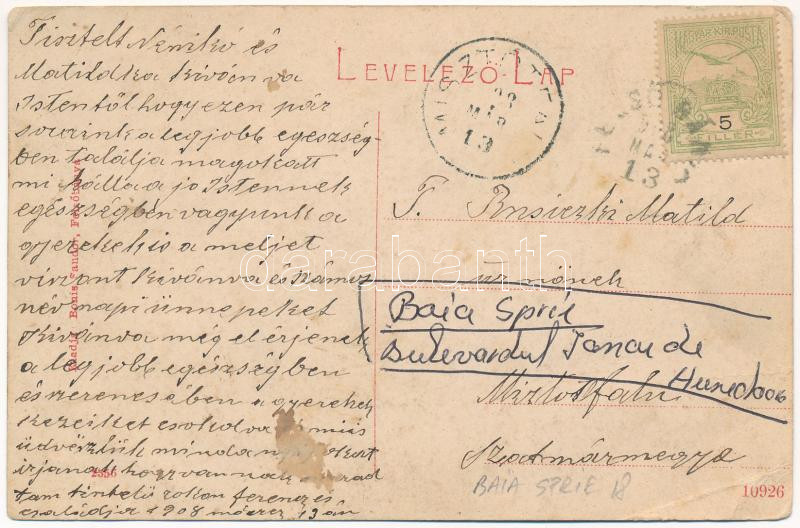 Tisztelt Nénikó és
Matildka Kívánva
Istentől hogy ezen pár
sorunk a legjobb egészség-
ben találja magokatt
mi hálla a jo Istennek
egészségben vagyunk a
gyerekek is a meljet
viszont Kívánva és
név napi ünnepeket
Kívánva még el érjenek
a legjobb egészségben
és szerencsében a gyerekek
Kezeiket csokolva mi is
üdvözljük mindanyijokat
irjanak hogy van nak
rokon ferencz és
családja 1908 márcz 13 án
Kiadja Bónis Sándor, Felsőbánya
2556
LEVELEZŐ-LAP
MISZTÓTFALU
908
MÁR
13
MAGYAR KIR. POSTA
5
FILLER
MÁR
13
T. Rusiczki Matild
úrnőnek
Baia Sprie
Bulevardul Iancu de
Hunedoara
Miztótfalu
Szatmármegye
BAIA SPRIE
10926
darabanth